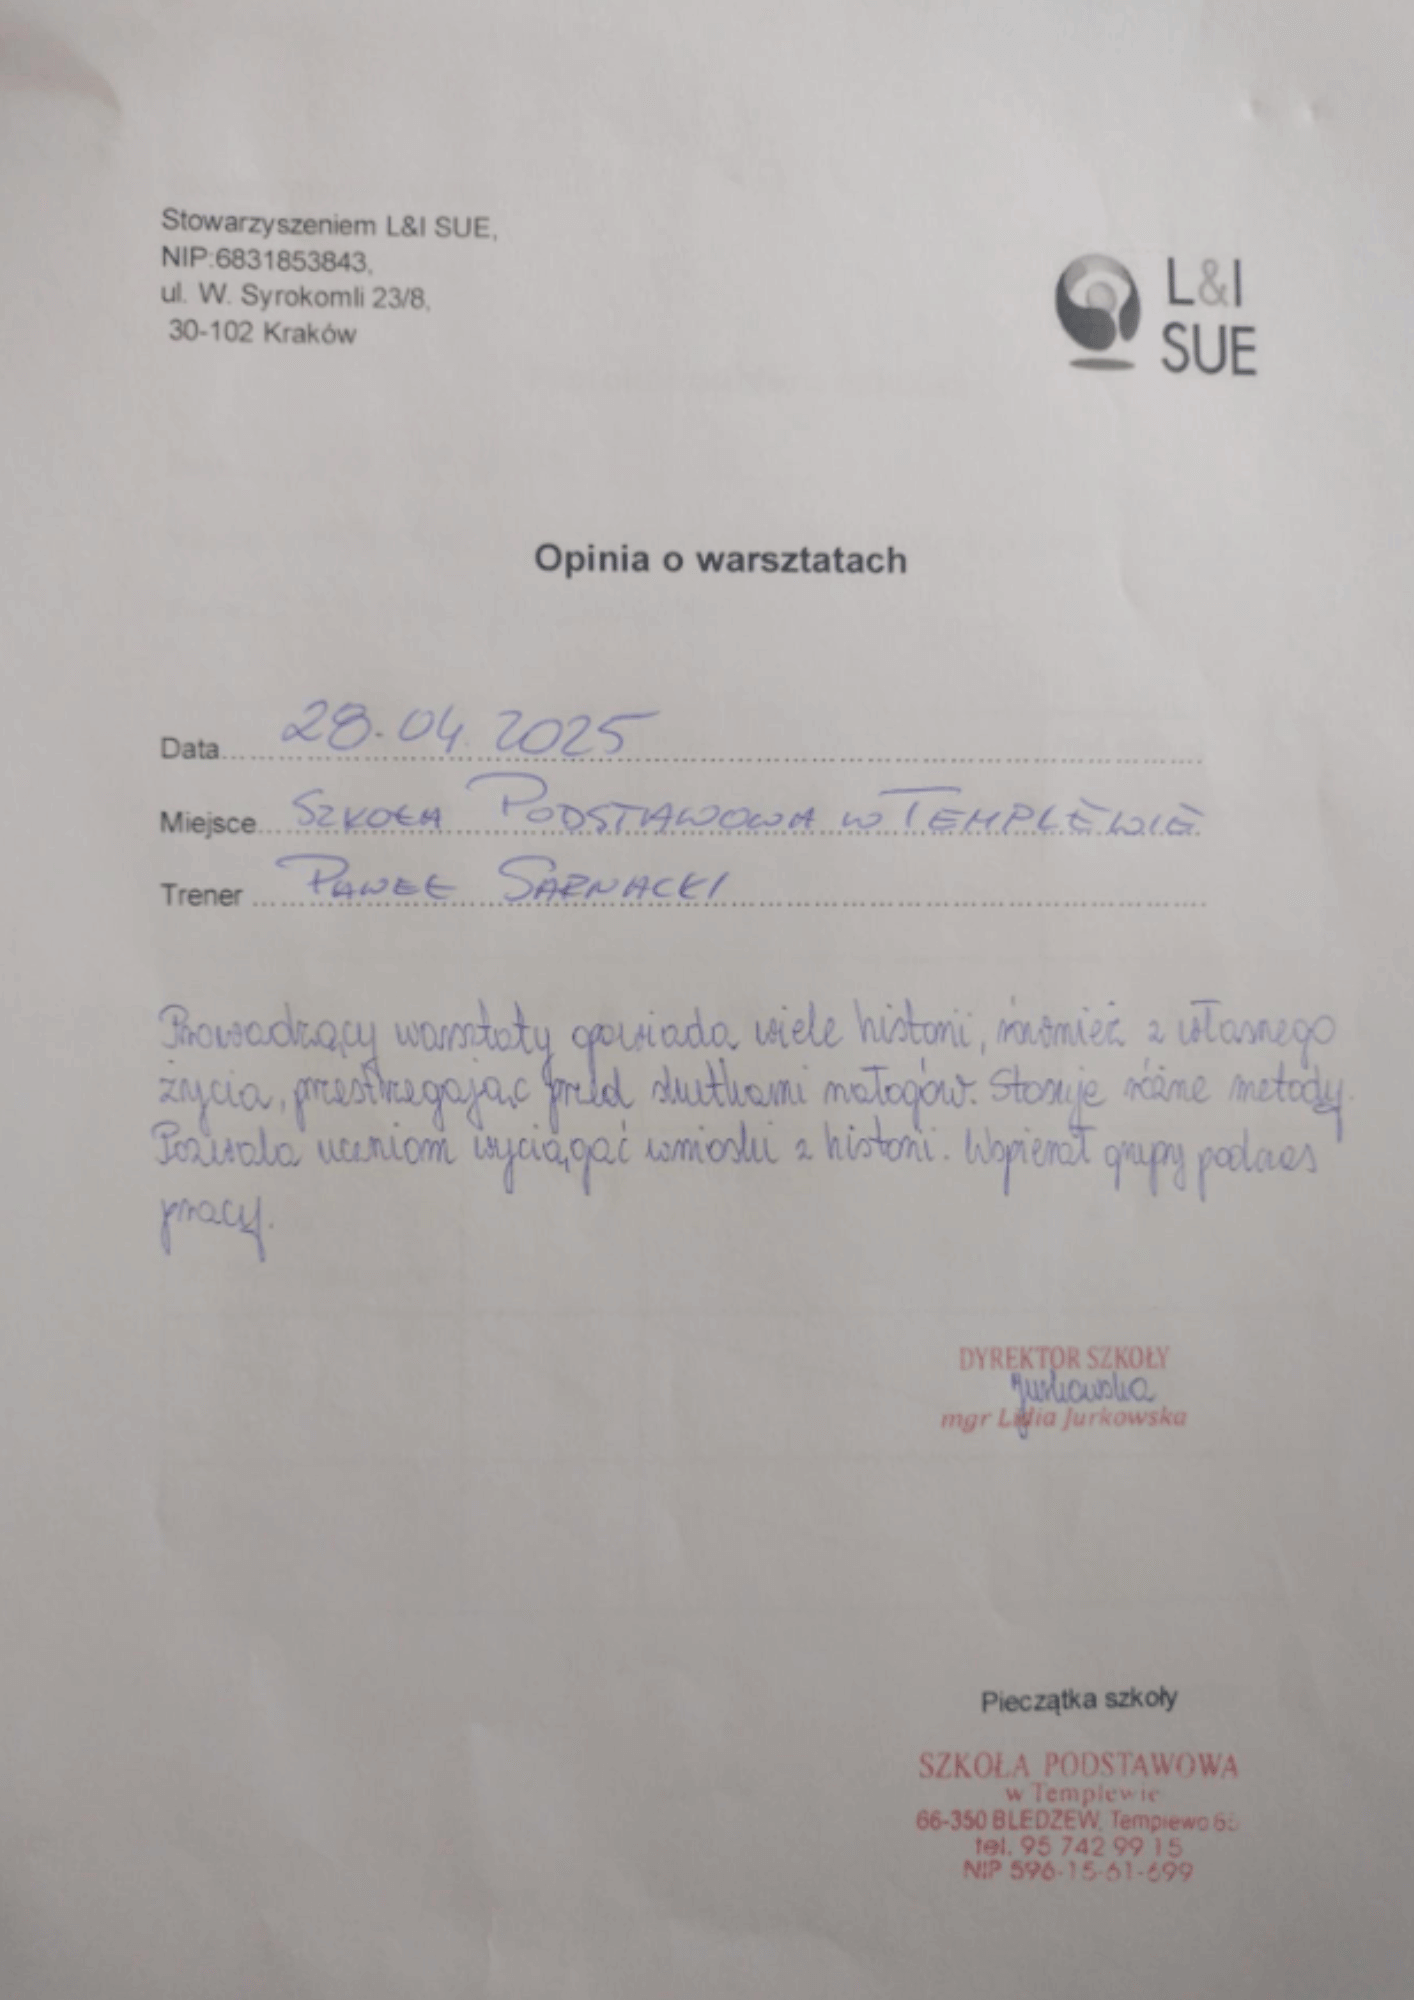 Stowarzyszeniem L&I SUE,
NIP:6831853843,
ul. W. Syrokomli 23/8,
30-102 Kraków
L&I
SUE
Opinia o warsztatach
Data 28.04.2025
Miejsce SZKOŁA PODSTAWOWA W TEMPLEWIE
Trener PAWEŁ SARNACKI
Prowadzący warsztaty opowiada wiele historii, również z własnego
życia, przestrzegając przed skutkami nałogów. Stosuje różne metody.
Pozwala uczniom wyciągać wnioski z historii. Wspierał grupy podczas
pracy.
DYREKTOR SZKOŁY
Jurkowska
mgr Lidia Jurkowska
Pieczątka szkoły
SZKOŁA PODSTAWOWA
w Templewie
66-350 BLEDZEW, Templewo
tel. 95 742 99 15
NIP 596-15-61-699